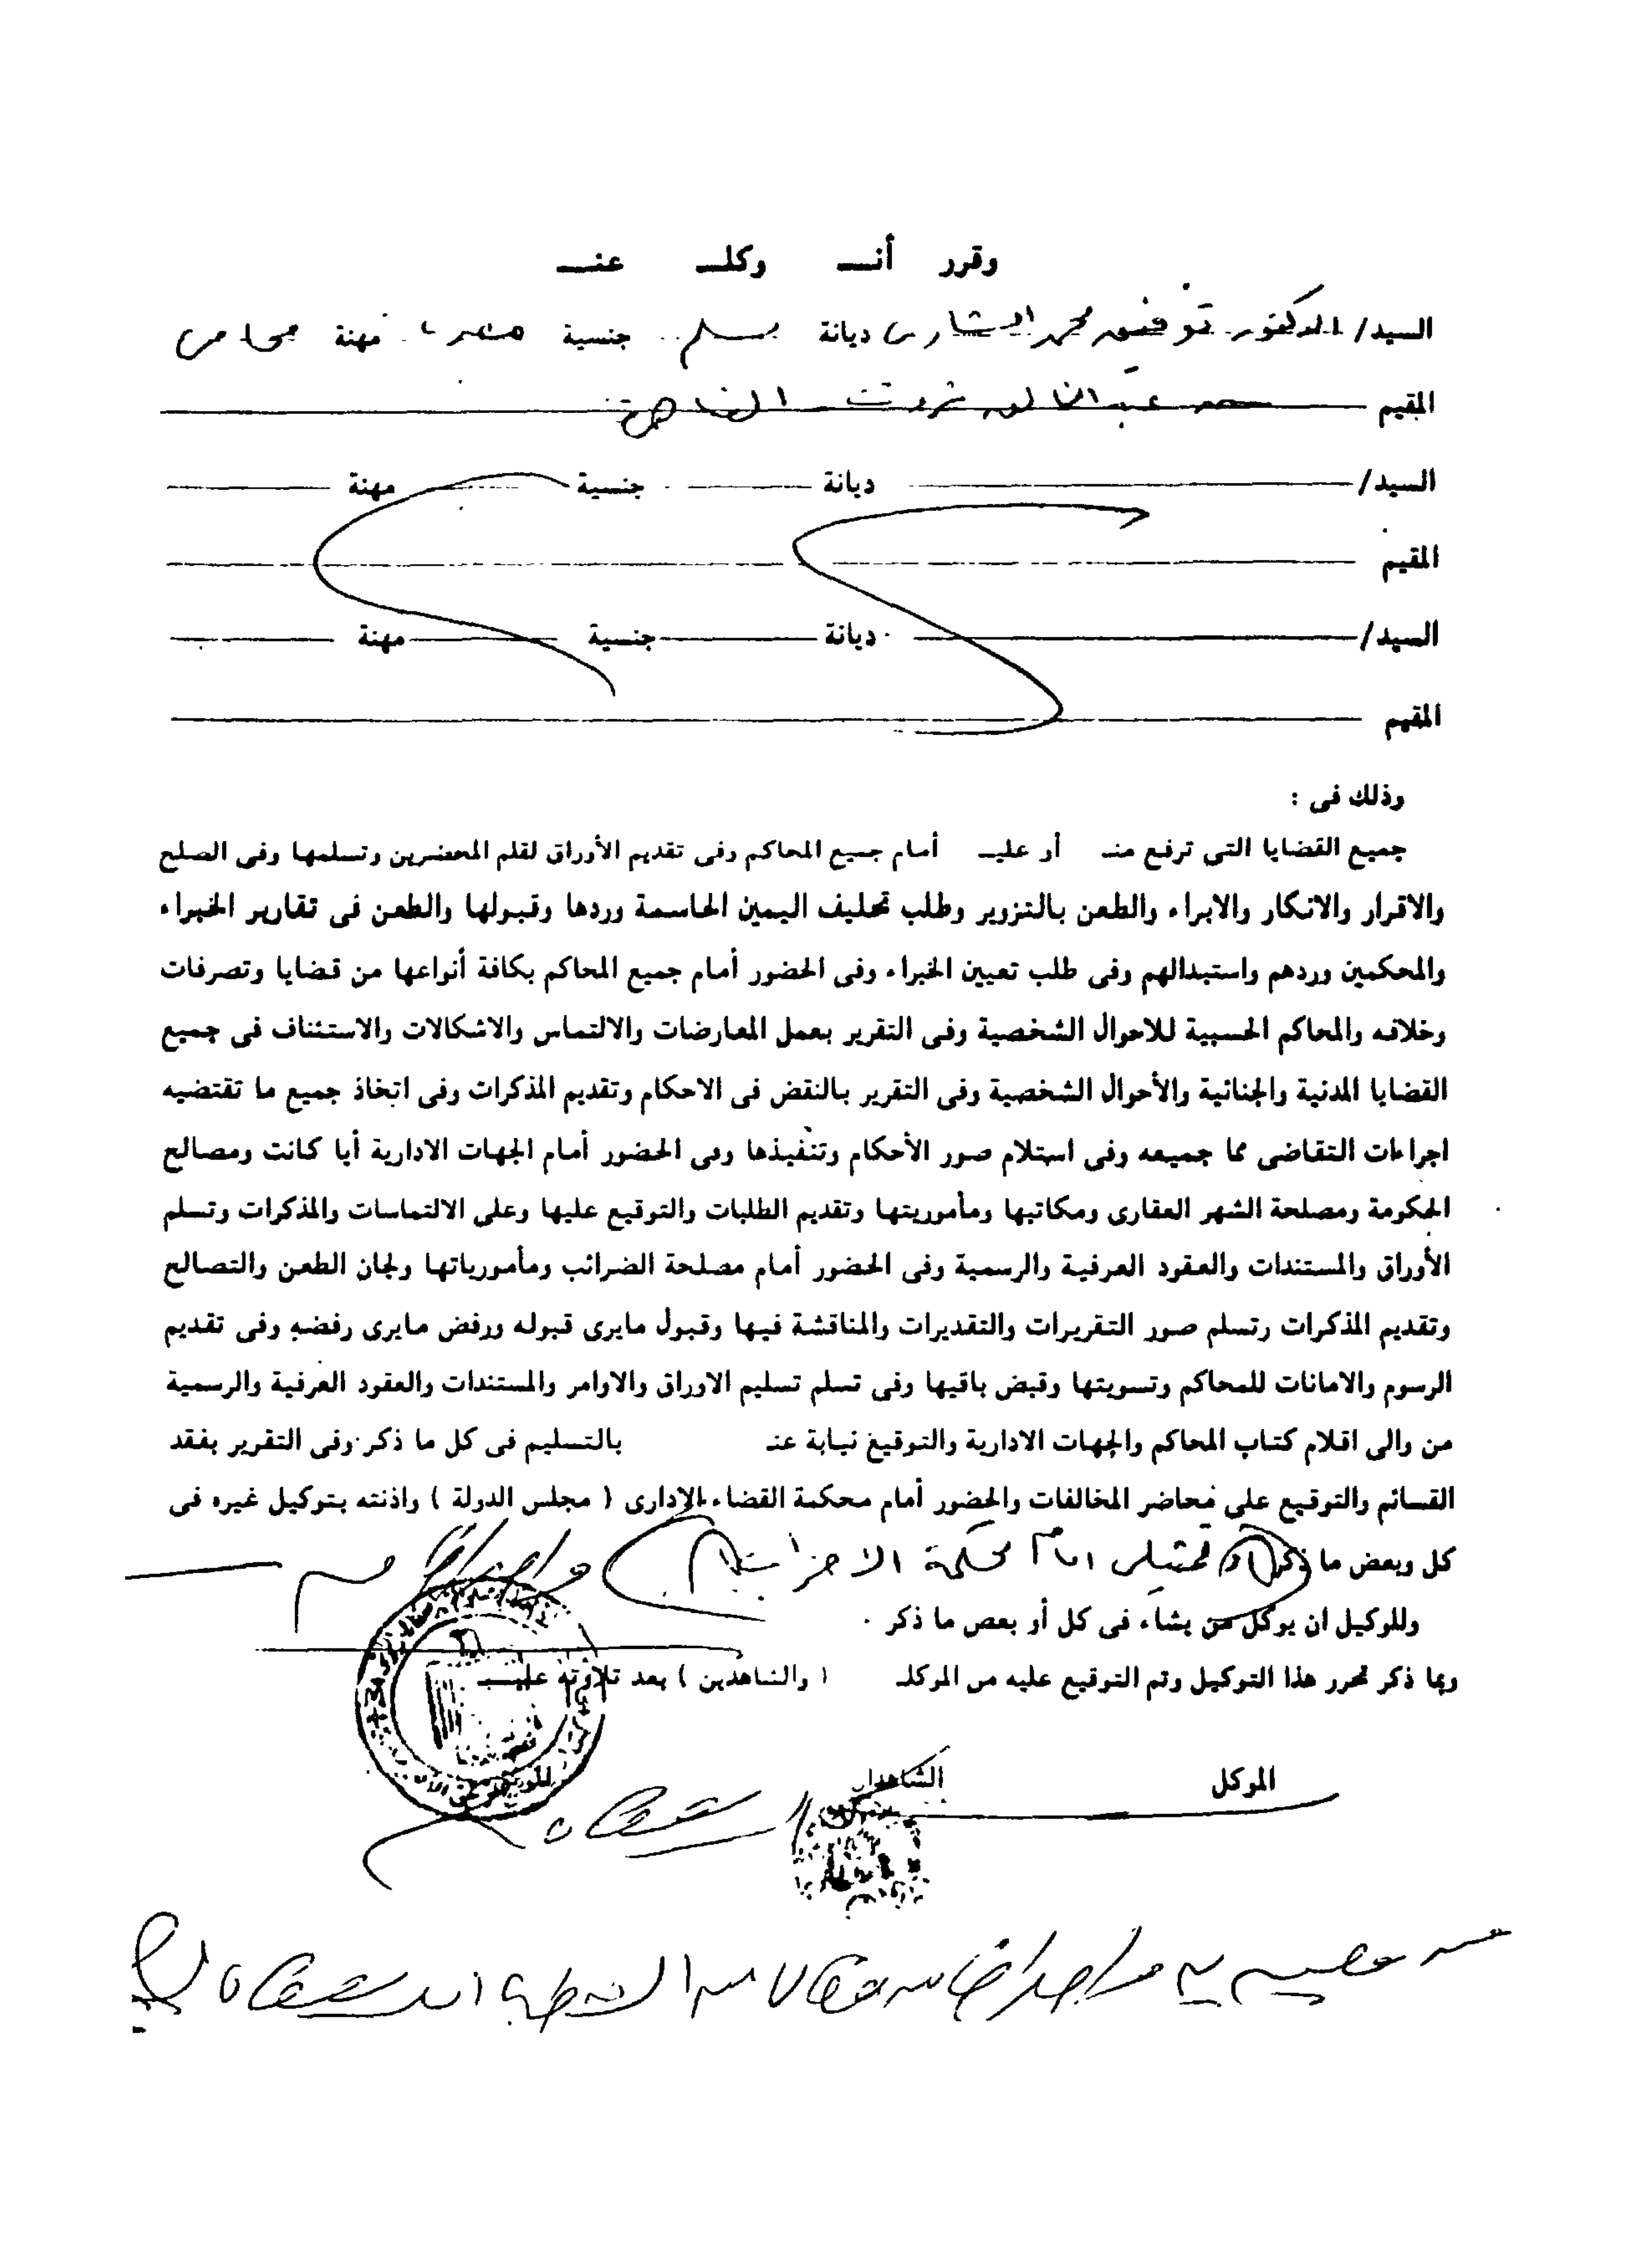 وقرر أنـــ وكلـــ عنـــ
السيد/ الدكتور توفيق محمد الشاوى ديانة مسلم جنسية مصرى مهنة محامى
المقيم عبد الخالق ثروت القاهرة
السيد/ ديانة جنسية مهنة
المقيم
السيد/ ديانة جنسية مهنة
المقيم
وذلك فى :
جميع القضايا التى ترفع منـ أو عليـ أمام جميع المحاكم وفى تقديم الأوراق لقلم المحضرين وتسلمها وفى الصلح
والاقرار والانكار والابراء والطعن بالتزوير وطلب تحليف اليمين الحاسمة وردها وقبولها والطعن فى تقارير الخبراء
والمحكمين وردهم واستبدالهم وفى طلب تعيين الخبراء وفى الحضور أمام جميع المحاكم بكافة أنواعها من قضايا وتصرفات
وخلافه والمحاكم الحسبية للاحوال الشخصية وفى التقرير بعمل المعارضات والالتماس والاشكالات والاستئناف فى جميع
القضايا المدنية والجنائية والأحوال الشخصية وفى التقرير بالنقض فى الاحكام وتقديم المذكرات وفى اتخاذ جميع ما تقتضيه
اجراءات التقاضى مما جميعه وفى استلام صور الأحكام وتنفيذها وفى الحضور أمام الجهات الادارية أيا كانت ومصالح
الحكومة ومصلحة الشهر العقارى ومكاتبها ومأموريتها وتقديم الطلبات والتوقيع عليها وعلى الالتماسات والمذكرات وتسلم
الأوراق والمستندات والعقود العرفية والرسمية وفى الحضور أمام مصلحة الضرائب ومأمورياتها ولجان الطعن والتصالح
وتقديم المذكرات وتسلم صور التقريرات والتقديرات والمناقشة فيها وقبول مايرى قبوله ورفض مايرى رفضه وفى تقديم
الرسوم والامانات للمحاكم وتسويتها وقبض باقيها وفى تسلم تسليم الاوراق والاوامر والمستندات والعقود العرفية والرسمية
من والى اقلام كتاب المحاكم والجهات الادارية والتوقيع نيابة عنـ بالتسليم فى كل ما ذكر وفى التقرير بفقد
القسائم والتوقيع على محاضر المخالفات والحضور أمام محكمة القضاء الإدارى ( مجلس الدولة ) واذنته بتوكيل غيره فى
كل وبعض ما ذكر امام محكمة الاحزاب
وللوكيل ان يوكل من يشاء فى كل أو بعض ما ذكر .
وبما ذكر تحرر هذا التوكيل وتم التوقيع عليه من الموكلـ ( والشاهدين ) بعد تلاوته عليـــ
الموكل الشاهدان